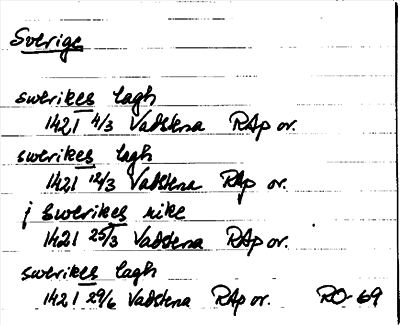 Sverige
swerikes lagh
1421 4/3 Vadstena RAp or.
swerikes lagh
1421 12/3 Vadstena RAp or.
j Swerikes rike
1421 25/3 Vadstena RAp or.
swerikes lagh
1421 29/6 Vadstena RAp or. RO-69